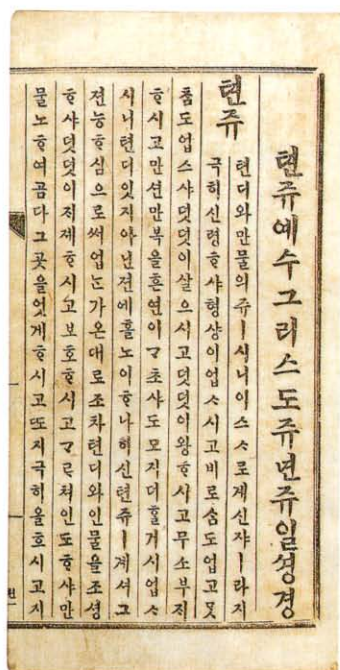 텬쥬예수그리스도쥬년쥬일셩경
텬쥬
텬디와만물의쥬ㅣ시니이스ᄉᆞ로게신쟈ㅣ라지
극히신령ᄒᆞ샤형샹이업ᄉᆞ시고비로ᄉᆞᆷ도업고ᄆᆞᆺ
ᄎᆞᆷ도업스샤덧덧이살으시고덧덧이왕ᄒᆞ시고무소부ᄌᆡ
ᄒᆞ시고만션만복을흔연이ᄀᆞ초샤도모지더ᄒᆞᆯ거시업ᄉᆞ
시니텬디잇지아닌젼에홀노이ᄒᆞ나히신텬쥬ㅣ계셔그
젼능ᄒᆞ심으로써업ᄂᆞᆫ가온대로조차텬디와인물을조셩
ᄒᆞ샤덧덧이ᄌᆡ졔ᄒᆞ시고보호ᄒᆞ시고ᄀᆞᄅᆞ쳐인도ᄒᆞ샤만
물노ᄒᆞ여곰다그곳을엇게ᄒᆞ시고ᄯᅩ지극히올흐시고지